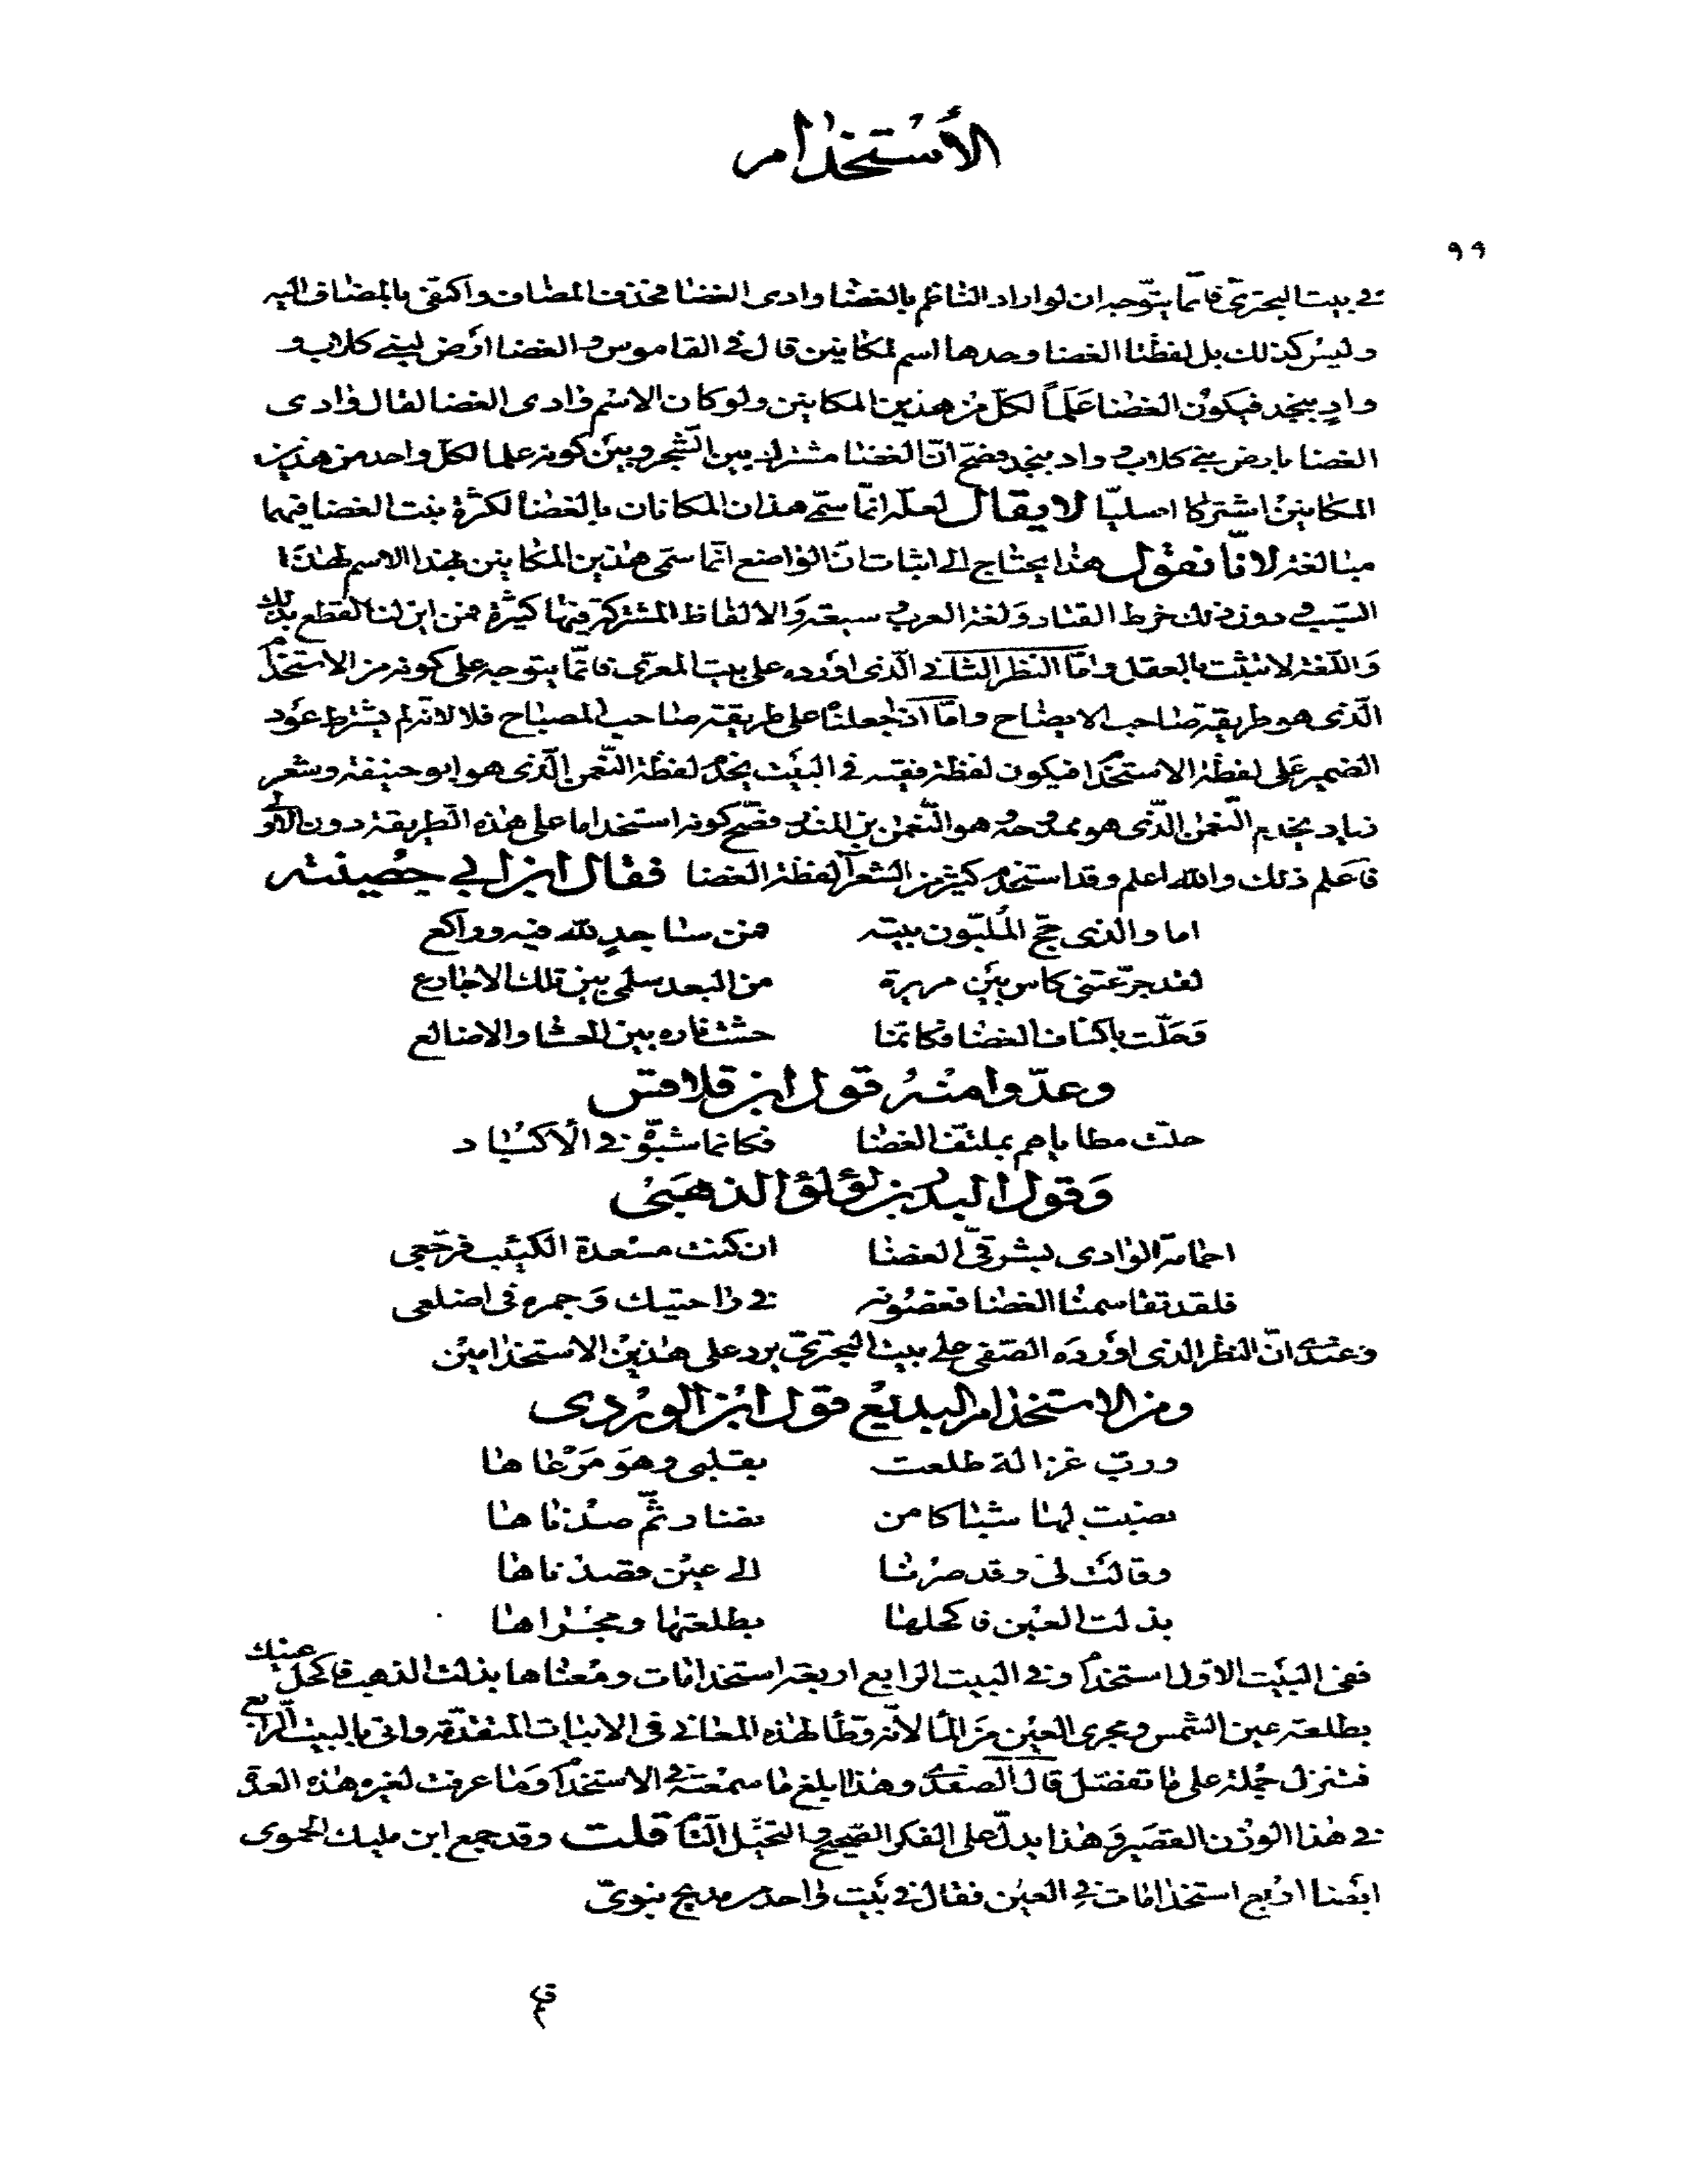 الأستخدام
٩٩
في بيت البحتري فانما يتوجه ان لو اراد الناظم بالغضا وادى الغضا فحذف المضاف واكتفى بالمضاف اليه
وليس كذلك بل لفظة الغضا وحدها اسم لمكانين قال في القاموس والغضا ارض لبني كلاب و
وادٍ بنجد فيكون الغضا عَلَماً لكلّ من هذين المكانين ولو كان الاسم وادى الغضا لقال وادى
الغضا بارض بني كلاب و واد بنجد فصحّ انّ الغضا مشترك بين الشجر وبين كونه علما لكل واحد من هذين
المكانين اشتراكا اصليّا لا يقال لعله انّما سمّى هذان المكانان بالغضا لكثرة نبت الغضا فيهما
مبالغة لانّا نقول هذا يحتاج الى اثبات انّ الواضع انّما سمّى هذين المكانين بهذا الاسم لهذا
السّبب و دون ذلك خرط القتاد وَلغة العرب سبعة وَالالفاظ المشتركة فيها كثيرة فمن اين لنا القطع بذلك
وَاللّغة لا تثبت بالعقل وامّا النظر الثاني الّذى اورده على بيت المعرّى فانّما يتوجه على كونه من الاستخدام
الّذى هو طريقة صاحب الايضاح وامّا اذا جعلناه على طريقة صاحب المصباح فلا لانّه لم يشترط عَود
الضمير على لفظة الاستخدام فيكون لفظة فقيه في البيت يخدم لفظة النّعمن الّذى هو ابو حنيفة وشعر
زياد يخدم النّعمن الّذى هو ممدوحه هو النّعمن بن المنذر فصحّ كونه استخداما على هذه الطّريقة دون الأولى
فاعلم ذلك والله اعلم وقد استخدم كثير من الشعراء لفظة الغضا فقال ابن ابي حُصينه
اما والذى حجّ المُلبّون بيته فمن ساجدٍ لله فيه وراكع
لقد جرّعتنى كاس بين مريرة من البعد سلمى بين تلك الاجارع
وَحلّت باكناف الغضا فكانّما حشت ناره بين الحشا والاضالع
وعدّوا منه قول ابن قلاقس
حلّت مطاياهم بملتفّ الغضا فكانما شبّوه في الأكباد
وَقول البدر بن لؤلؤ الذهبى
احمامة الوادى بشرقيّ الغضا ان كنت مسعدة الكئيب فرجّعى
فلقد تقاسمنا الغضا فغضُونه في راحتيك وَجمره فى اضلعى
وعندى انّ النظر الذى اورَده الصّفدى على بيت البحترىّ يرد على هذين الاستخدامين
ومن الاستخدام البديع قول ابن الوردى
وربّ غزالة طلعت بقلبى وهوَ مَرْعاها
نصبت لها شباكا من نضار ثمّ صدناها
وقالت لى وقد صرنا الى عين قصدناها
بذلت العين فاكحلها بطلعتها ومجراها
ففى البيت الاول استخدام وفي البيت الرابع اربعة استخدامات ومعناها بذلت الذهب فاكحل عينك
بطلعة عين الشمس ومجرى العين من الماء لانّه وطّأ لهذه المعانى فى الابيات المتقدّمة واتى بالبيت الرابع
فتنزل جُملة على ما تفضّل قال الصفدى وهذا ابلغ ما سمعته في الاستخدام وَما عرفت لغيره هذه العدّة
في هذا الوزن القصير وَهذا يدلّ على الفكر الصّحيح والتخيّل التّام قلت وقد جمع ابن مليك الحموى
ايضا اربع استخدامات في العين فقال في بيت واحد من مديح نبوىّ